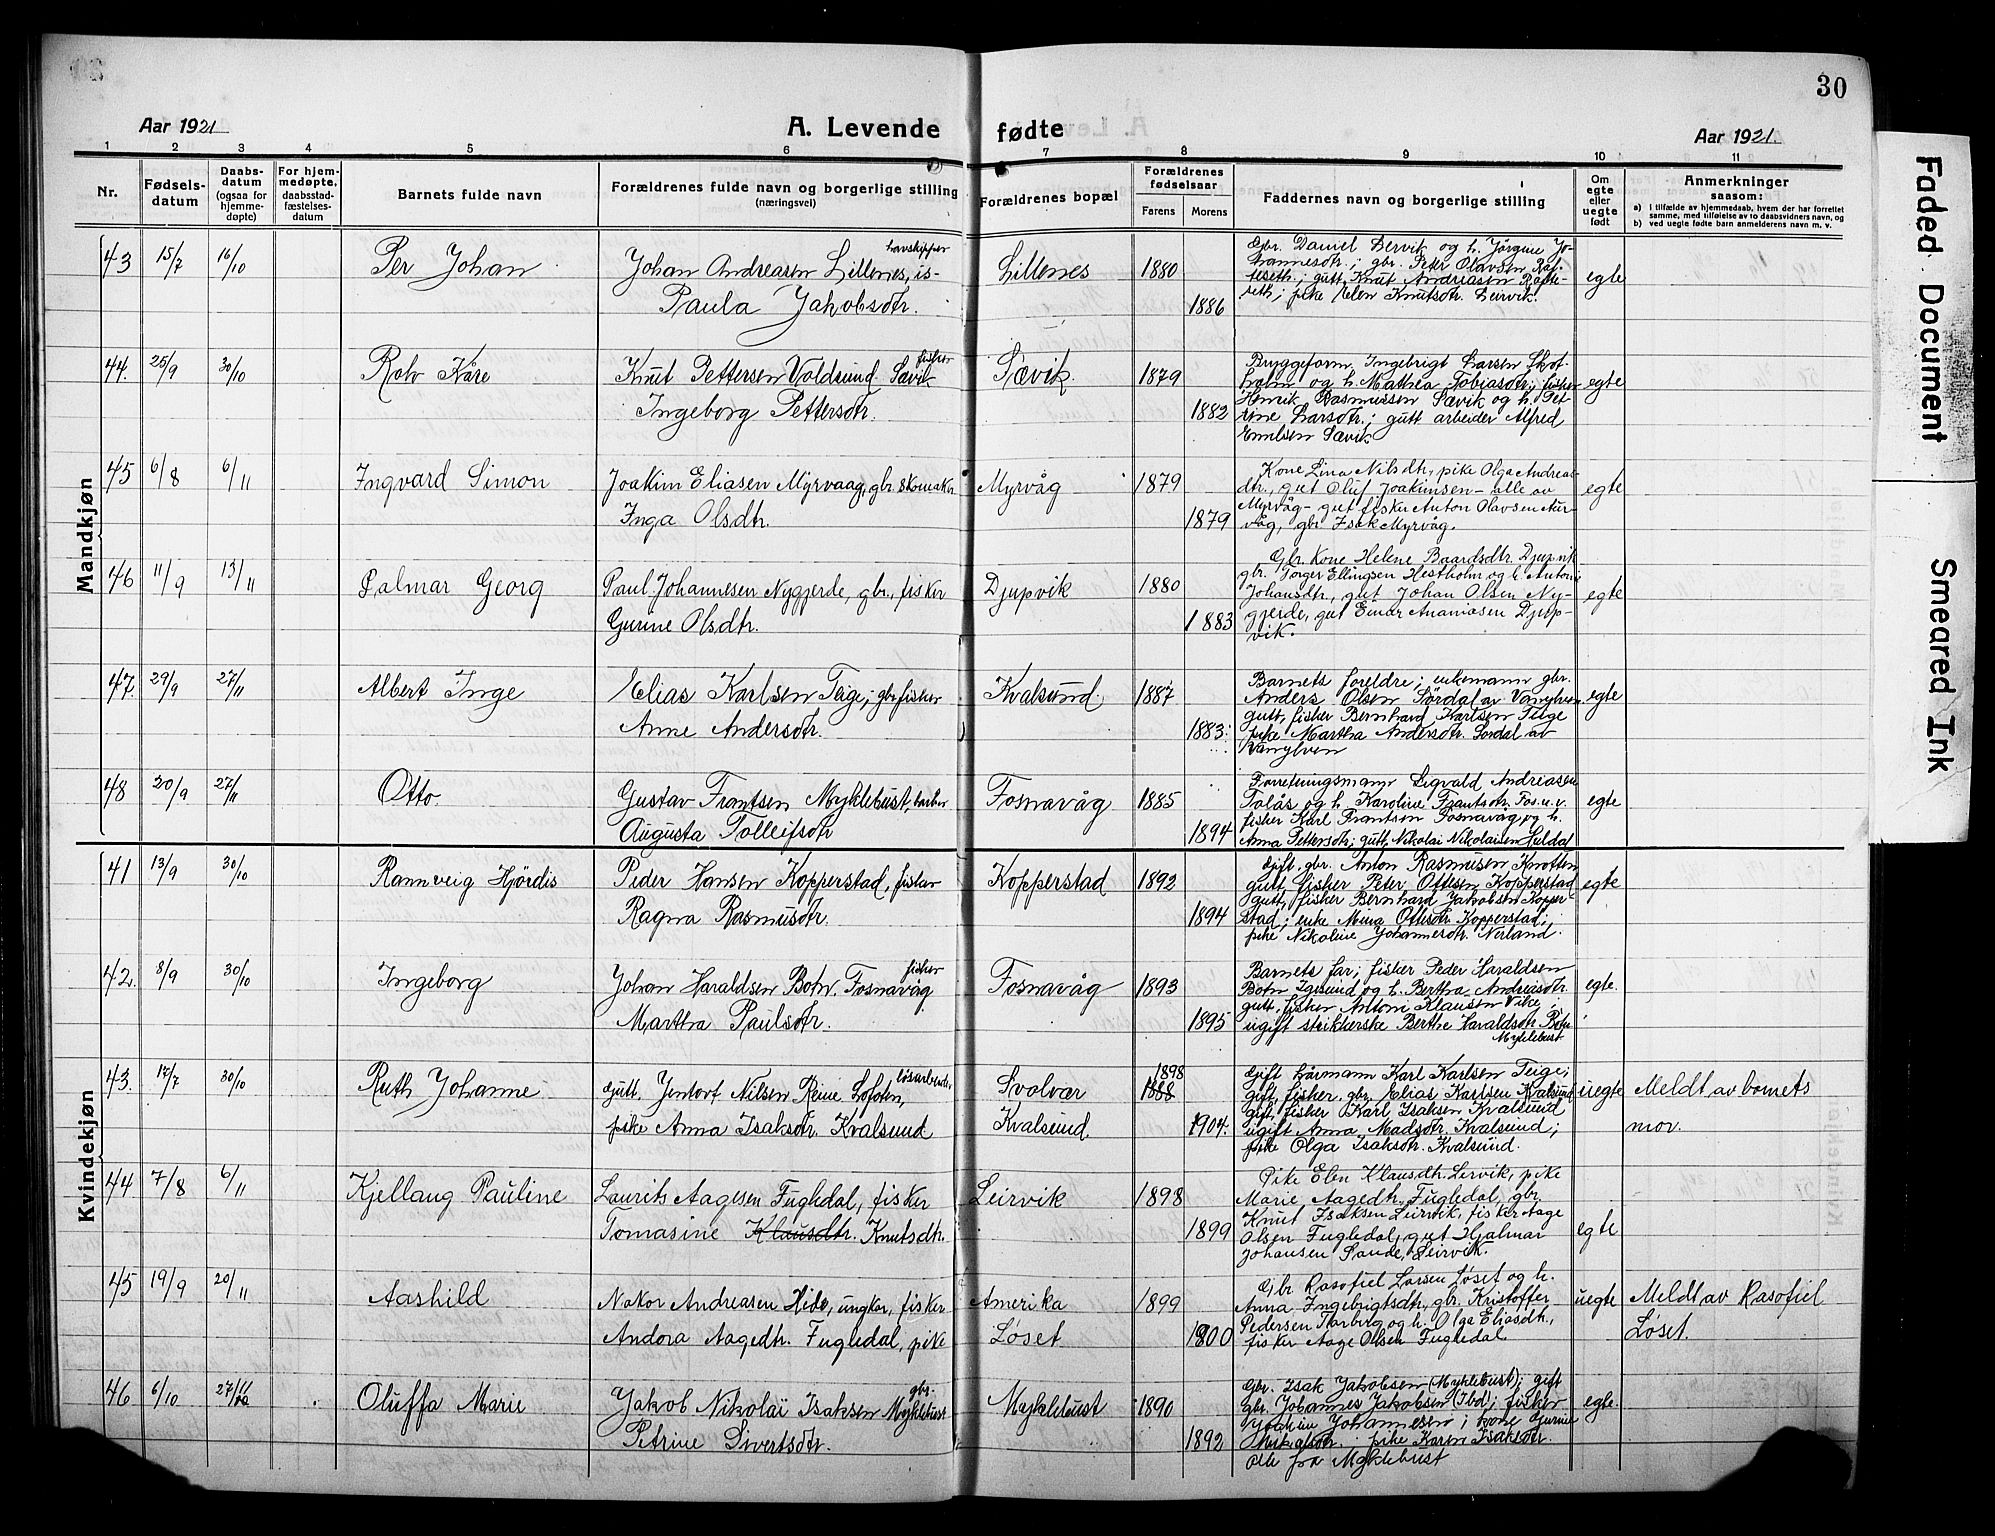 30
Aar 1921
A. Levende fødte
Aar 1921.
1 2 3 4 5 6 7 8 9 10 11
Nr.
Fødsels-
datum
Daabs-
datum
(ogsaa for
hjemme-
døpte)
For hjem-
medøpte,
daabsstad-
fæstelses-
datum
Barnets fulde navn
Forældrenes fulde navn og borgerlige stilling
(næringsvei)
Forældrenes bopæl
Forældrenes
fødselsaar
Farens Morens
Faddernes navn og borgerlige stilling
Om
egte
eller
uegte
født
Anmerkninger
saasom:
a) I tilfælde av hjemmedaab, hvem der har forrettet
samme, med tilføielse av to daabsvidners navn, og
b) ved uegte fødte barn anmelderens navn m. v.
Mandkjøn
43 15/7 16/10 Per Johan
havskipper
Johan Andreasen Lillenes, is-
Paula Jakobsdtr.
Lillenes 1880
1886
Gbr. Daniel Dervik og h. Jørgine Jo-
hannesdtr.; gbr. Peter Olavsen Raf-
teseth; gutt Knut Andreasen Rafte-
seth; pike Elen Knutsdtr. Leirvik.
egte
44. 25/9 30/10 Rolv Kåre
fisker
Knut Pettersen Voldsund. Sævik
Ingeborg Pettersdtr.
Sævik. 1879
1882
Bryggeform. Ingebrigt Larsen Skot-
holm og h. Mathea Tobiasdtr; fisker
Henrik Rasmussen Sævik og h. Pet-
rine Larsdtr.; gutt arbeider Alfred
Emilsen Sævik
egte
45 6/8 6/11 Ingvard Simon
Joakim Eliasen Myrvaag, gbr. skomaker
Inga Olsdtr.
Myrvåg 1879
1879
Kone Lina Nilsdtr., pike Olga Andreas-
dtr., gut Oluf Joakimsen – alle av
Myrvåg – gut fisker Anton Olavsen Aur-
våg, gbr Isak Myrvåg.
egte
46 11/9 13/11 Palmar Georg
Paul Johannesen Nygjerde, gbr., fisker
Gurine Olsdtr.
Djupvik 1880
1883
Gbr. Kone Helene Baardsdtr. Djupvik
gbr. Jørger Ellingsen Hestholm og h. Antoni
Johansdtr., gut Johan Olsen Ny-
gjerde, gut Einar Ananiasen Djup-
vik.
egte
47. 29/9 27/11 Albert Inge
Elias Karlsen Teige, gbr fisker
Anne Andersdtr.
Kvalsund. 1887
1883.
Barnets foreldre; enkemann gbr.
Anders Olsen Sørdal av Vanylven
gutt, fisker Bernhard Karlsen Teige
pike Martha Andersdtr. Sørdal av
Vanylven
egte
48 20/9 27/11 Otto.
Gustav Frantsen Myklebust, barber
Augusta Tolleifsdtr
Fosnavåg 1885
1894
Forretningsmann Sigvald Andreasen
Tolås og h. Karoline Frantsdtr. Fosn.v.
fisker Karl Frantsen Fosnavåg og h.
Anna Pettersdtr; gutt, Nikolai Nikolaisen Huldal
egte
Kvindekjøn
41 13/9 30/10 Rannveig Hjørdis
Peder Hansen Kopperstad, fisker
Ragna Rasmusdtr.
Kopperstad 1892
1894
Gift. gbr. Anton Rasmusen Knotten
gutt, fisker Peter Ottesen Kopperstad
gutt, fisker Bernhard Jakobsen Kopper-
stad; enke Mina Ottesdtr. Kopperstad;
pike Nikoline Johannesdtr. Nerland.
egte
42. 8/9 30/10 Ingeborg
fisker
Johan Haraldsen Botn. Fosnavåg
Martha Paulsdtr.
Fosnavåg 1893
1895
Barnets far; fisker Peder Haraldsen
Botn Igesund og h. Bertha Andreasdtr.
gutt, fisker Antoni Klausen Vike;
ugift strikkerske Berthe Haraldsdtr Botn
Myklebust
egte.
43. 17/7 30/10 Ruth Johanne
løsarbeider
gutt. Jentoft Nilsen Reine Lofoten,
pike Anna Isaksdtr. Kvalsund.
Svolvær 1898
1888
Kvalsund. 1904.
Gift hårmann Karl Karlsen Teige;
gift, fisker. gbr. Elias Karlsen Kvalsund
gift, fisker Karl Isaksen Kvalsund
ugift Anna Madsdtr. Kvalsund;
pike Olga Isaksdtr. Kvalsund.
uegte
Meldt av barnets
mor.
44 7/8 6/11 Kjellaug Pauline
Laurits Aagesen Fugledal, fisker
Tomasine Klausdtr. Knutsdtr.
Leirvik 1898
1899
Pike Elen Klausdtr. Leirvik, pike
Marie Aagedtr. Fugledal, gbr.
Knut Isaksen Leirvik, fisker Aage
Olsen Fugledal, gut Hjalmar
Johansen Sande, Leirvik.
egte
45 19/9 20/11 Aashild
Nakor Andreasen Heide, ungkar, fisker
Andora Aagedtr. Fugledal, pike
Amerika 1899
Løset 1900
Gbr Rasofiel Larsen Løset og h.
Anna Ingebrigtsdtr., gbr. Kristoffer
Pedersen Tarberg og h. Olga Eliasdtr.,
fisker Aage Olsen Fugledal
uegte
Meldt av Rasofiel
Løset.
46 6/10 27/11 Oluffa Marie
gbr.
Jakob Nikolai Isaksen Myklebust
Petrine Sivertsdtr.
Myklebust 1890
1892
Gbr. Isak Jakobsen (Myklebust); gift
Gbr. Johannes Jakobsen (Ibd); fisker
Joakim Johannesen; kone Gurine
pike Karen Isaksdtr.
alle fra Myklebust
egte.
Faded Document
Smeared Ink